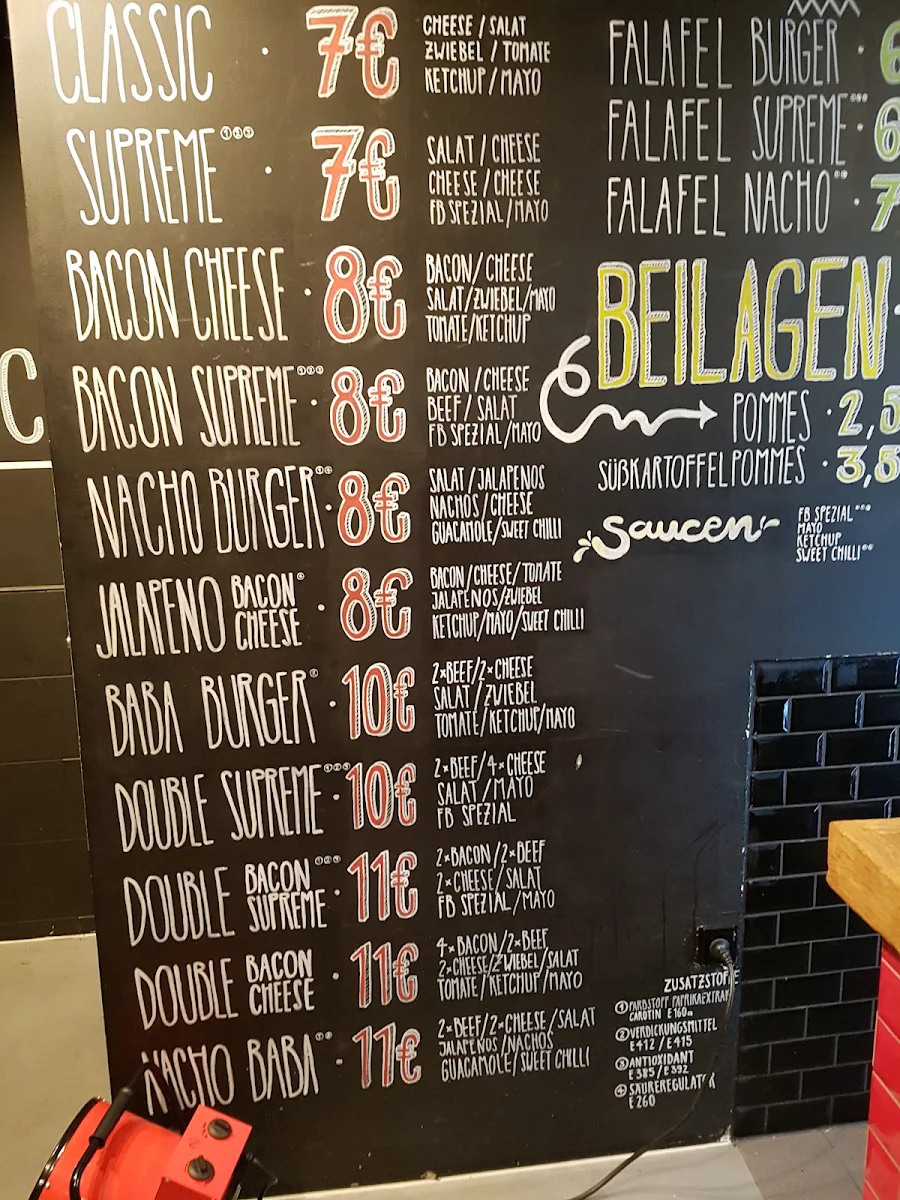 CLASSIC · 7€
CHEESE / SALAT
ZWIEBEL / TOMATE
KETCHUP / MAYO
SUPREME ①②③ · 7€
SALAT / CHEESE
CHEESE / CHEESE
FB SPEZIAL / MAYO
BACON CHEESE · 8€
BACON / CHEESE
SALAT / ZWIEBEL / MAYO
TOMATE / KETCHUP
BACON SUPREME ①②③ 8€
BACON / CHEESE
BEEF / SALAT
FB SPEZIAL / MAYO
NACHO BURGER · 8€
SALAT / JALAPENOS
NACHOS / CHEESE
GUACAMOLE / SWEET CHILLI
JALAPENO BACON CHEESE · 8€
BACON / CHEESE / TOMATE
JALAPENOS / ZWIEBEL
KETCHUP / MAYO / SWEET CHILLI
BABA BURGER · 10€
2×BEEF / 2×CHEESE
SALAT / ZWIEBEL
TOMATE / KETCHUP / MAYO
DOUBLE SUPREME ①②③ · 10€
2×BEEF / 4×CHEESE
SALAT / MAYO
FB SPEZIAL
DOUBLE BACON SUPREME ①②③ · 11€
2×BACON / 2×BEEF
2×CHEESE / SALAT
FB SPEZIAL / MAYO
DOUBLE BACON CHEESE · 11€
4×BACON / 2×BEEF
2×CHEESE / ZWIEBEL / SALAT
TOMATE / KETCHUP / MAYO
NACHO BABA · 11€
2×BEEF / 2×CHEESE / SALAT
JALAPENOS / NACHOS
GUACAMOLE / SWEET CHILLI
C
FALAFEL BURGER · 6
FALAFEL SUPREME · 6
FALAFEL NACHO · 7
BEILAGEN
POMMES · 2,5
SÜßKARTOFFELPOMMES · 3,5
saucen
FB SPEZIAL
MAYO
KETCHUP
SWEET CHILLI
ZUSATZSTOFFE
① FARBSTOFF PAPRIKAEXTRAK
CAROTIN E160a
② VERDICKUNGSMITTEL
E412 / E415
③ ANTIOXIDANT
E385 / E392
④ SÄUREREGULAT
E260